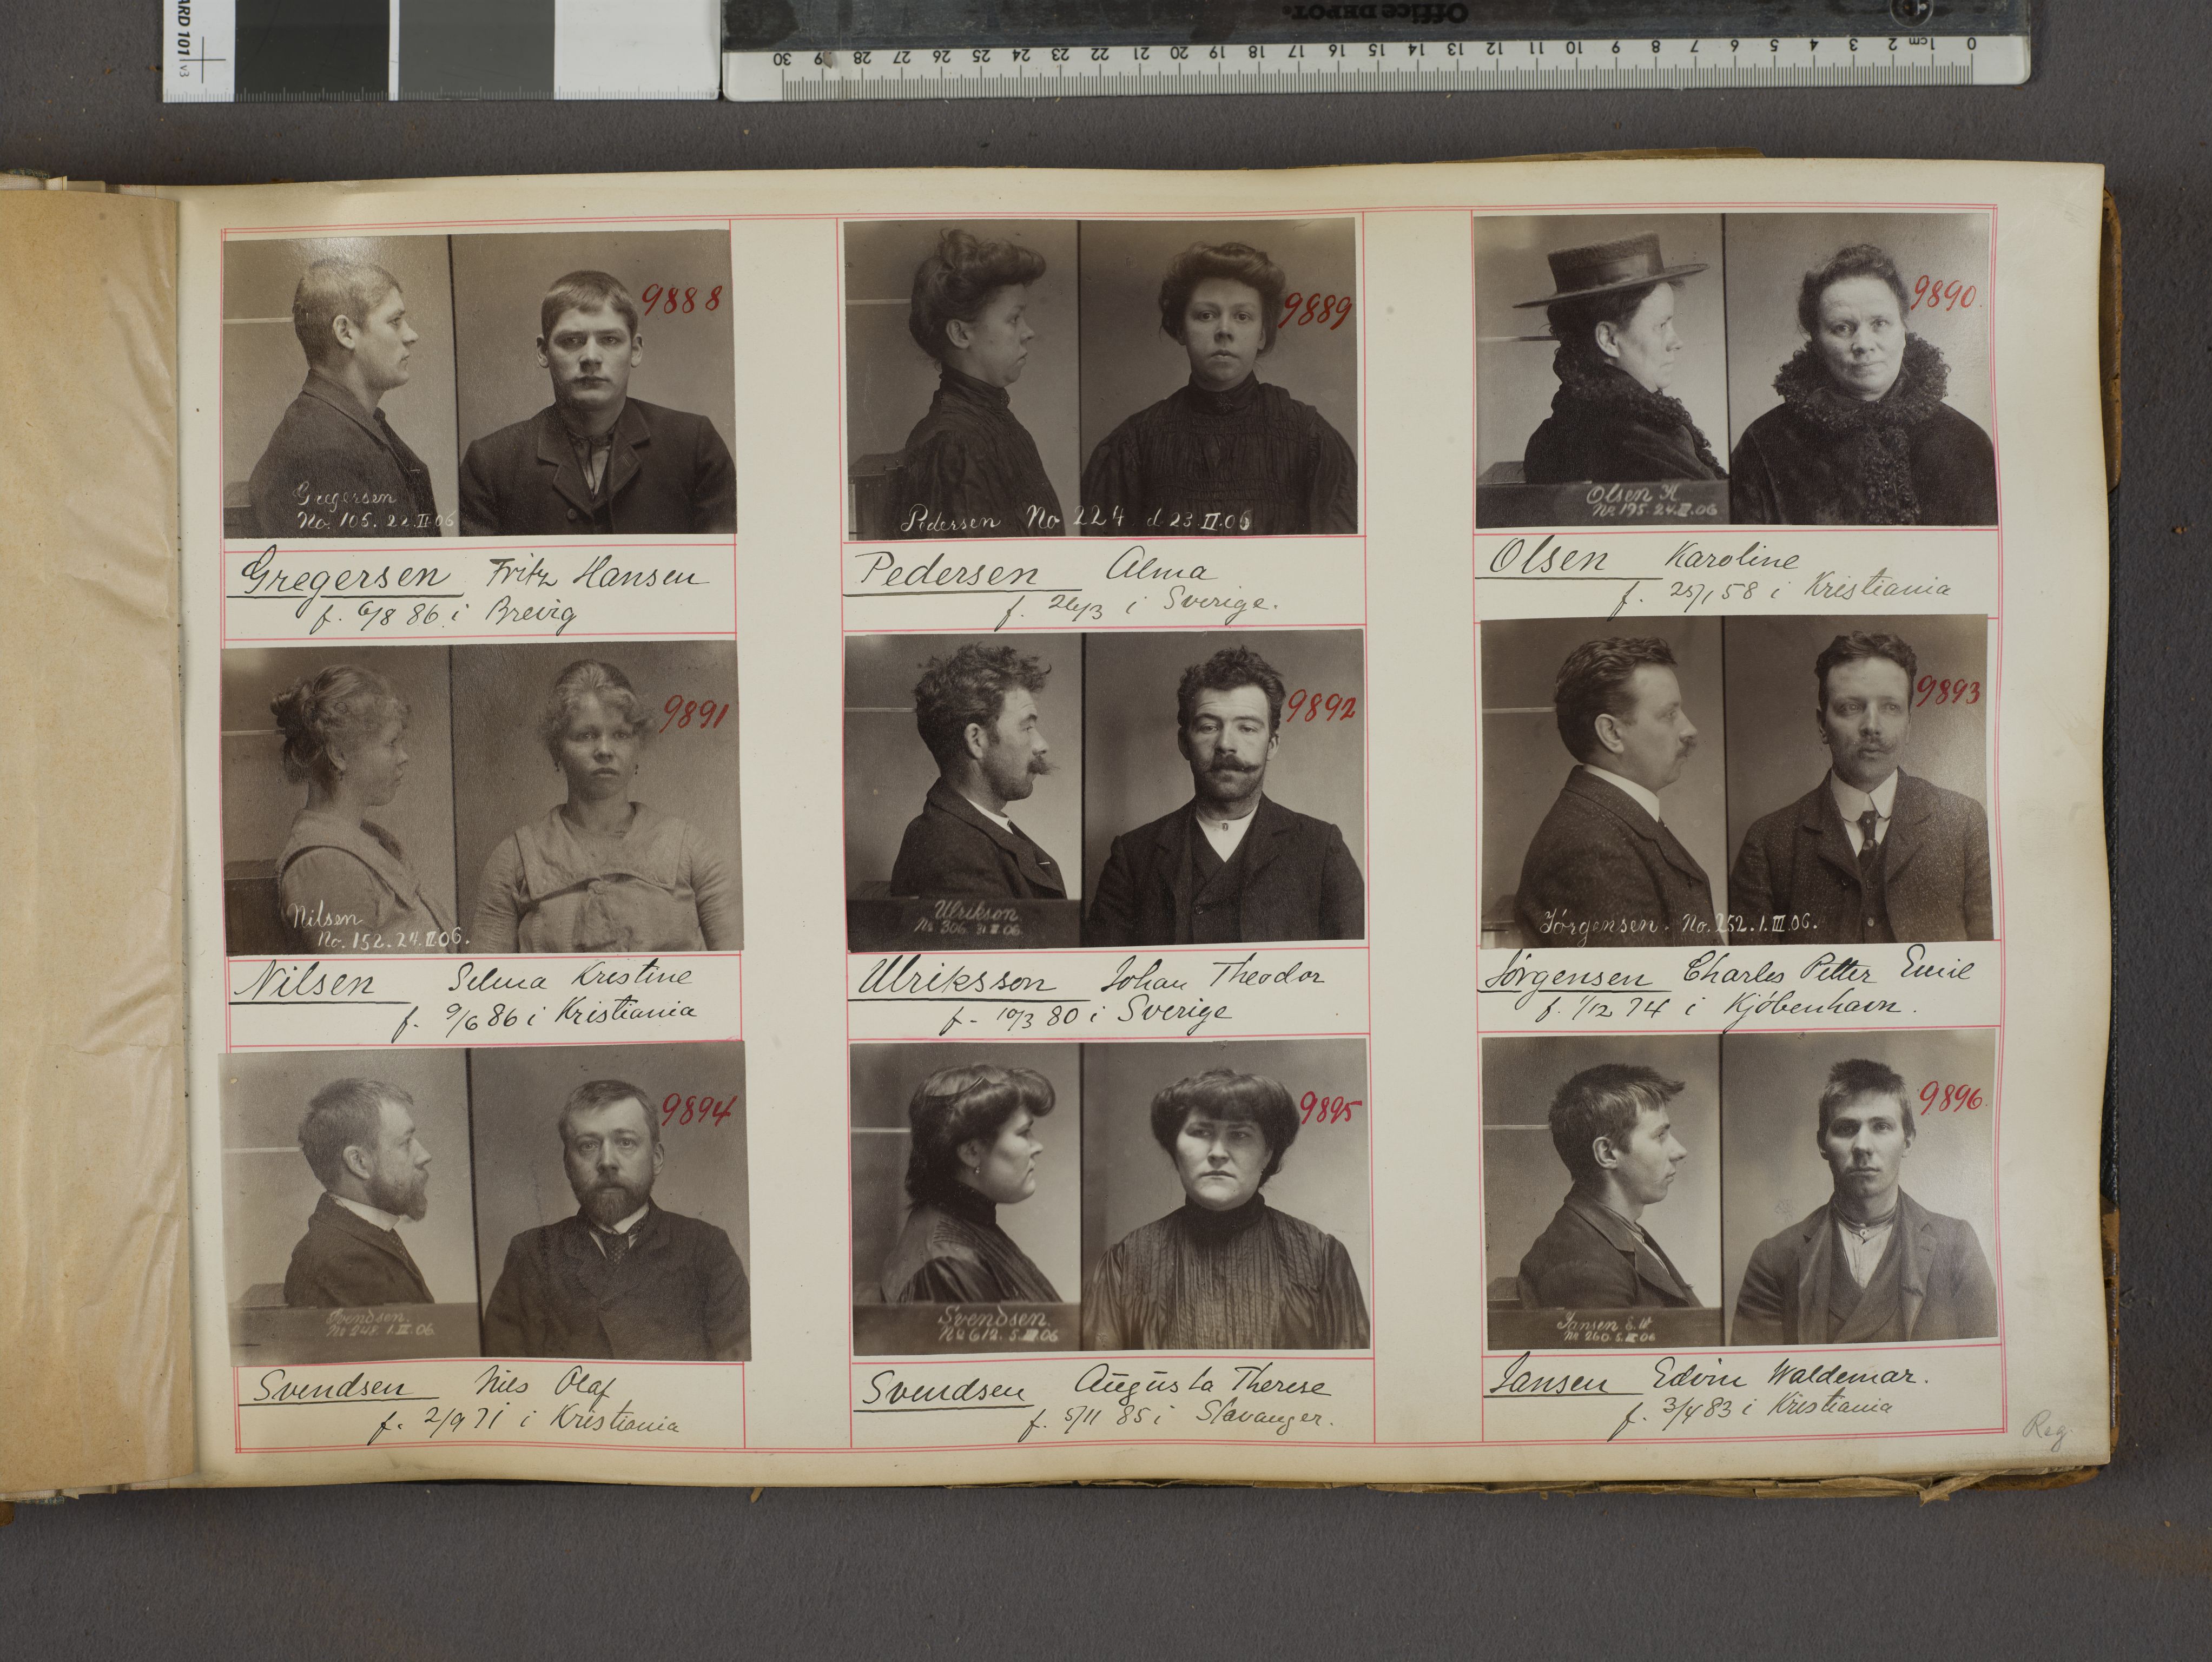 ARD 101 v3
Office DEPOT.
0 1cm 2 3 4 5 6 7 8 9 10 11 12 13 14 15 16 17 18 19 20 21 22 23 24 25 26 27 28 29 30
9888
Gregersen
No. 105. 22.II.06
Gregersen Fritz Hansen
f. 6/8 86 i Brevig
9889
Pedersen No 224 d 23.II.06
Pedersen Alma
f. 26/3 i Sverige.
9890.
Olsen K
Nr. 175. 24.II.06
Olsen Karoline
f. 25/1 58 i Kristiania
9891
Nilsen
No. 152. 24.II.06.
Nilsen Selma Kristine
f. 9/6 86 i Kristiania
9892
Ulrikson.
Nr 306. II.06.
Ulriksson Johan Theodor
f- 10/3 80 i Sverige
9893
Jörgensen. No. 252. 1.III.06.
Jörgensen Charles Petter Emil
f. 1/12 74 i Kjöbenhavn.
9894
Svendsen.
Nr 248. 1.III.06.
Svendsen Nils Olaf
f. 2/9 71 i Kristiania
9895
Svendsen.
No 612. 5.III.06
Svendsen Augusta Therese
f. 5/11 85 i Stavanger.
9896.
Jansen E.W
Nr 260. 5.III.06
Jansen Edvin Waldemar.
f. 3/4 83 i Kristiania
Reg.